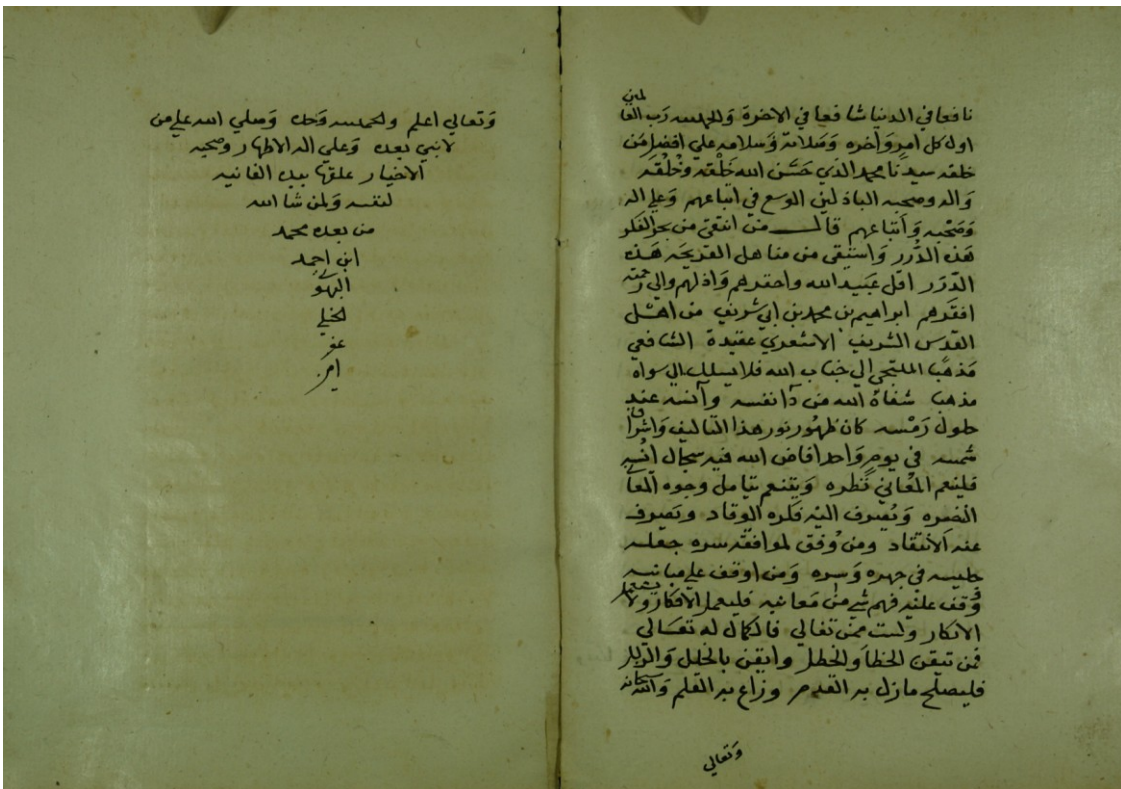 نافعا في الدنيا شافعا في الاخرة والحمد لله رب العالمين
اول كل امر وآخره وصلاته وسلامه علي افضل من
خلقه سيدنا محمد الذي حسن الله خلقه وخلقه
واله وصحبه الباذلين الوسع في اتباعهم وعلي اله
وصحبه واتباعهم قال من انتقي من بحر الفكر
هذه الدرر واستقي من مناهل القريحه هذه
الدرر اقل عبيد الله واحقرهم واذلهم والي رحمته
افقرهم ابراهيم بن محمد بن ابي شريف من اهل
القدس الشريف الاشعري عقيدة الشافعي
مذهبا الملتجي الي جناب الله فلا يسلك الي سواه
مذهبا شفاه الله من دآ نفسه وآنسه عند
حلول رمسه كان ظهور نور هذا التاليف واشراق
شمسه في يوم واحد افاض الله فيه سجال انسه
فلينعم المعاني نظره ويتنعم بتامل وجوه المعاني
النضره ويصرف اليه فكره الوقاد ويصرف
عنه الانتقاد ومن وفق لموافقة سره جعله
جليسه في جهره وسره ومن اوقف علي مبانيه
وقف عليه فهم شي من معانيه فليعمل الافكار ولا يستعمل
الانكار ولست ممن تغالي فالكمال له تعالي
فمن تيقن الخطأ والخطل وايقن بالخلل والزلل
فليصلح ما زل به القدم وزاغ به القلم والله سبحانه
وتعالي
وتعالي اعلم والحمد لله وحده وصلي الله علي من
لا نبي بعده وعلي اله الاطهار وصحبه
الاخيار علقها بيده الفانيه
لنفسه ولمن شا الله
من بعده محمد
ابن احمد
البهو
الحنبلي
عفي
امين